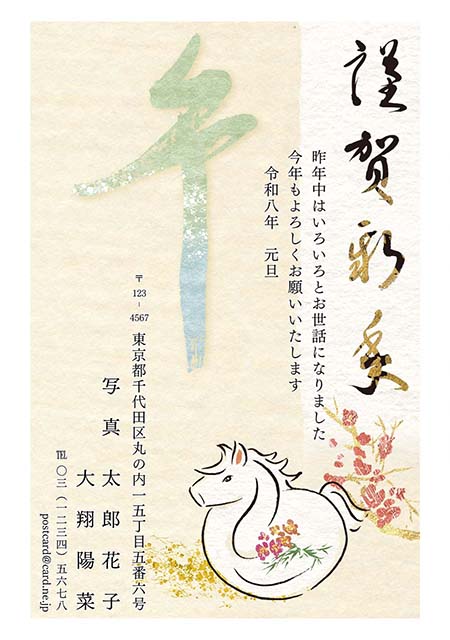 謹賀新年
昨年中はいろいろとお世話になりました
今年もよろしくお願いいたします
令和八年 元旦
午
〒123-4567
東京都千代田区丸の内一五丁目五番六号
写真 太郎 花子
大翔 陽菜
℡〇三(一二三四)五六七八
postcard@card.ne.jp